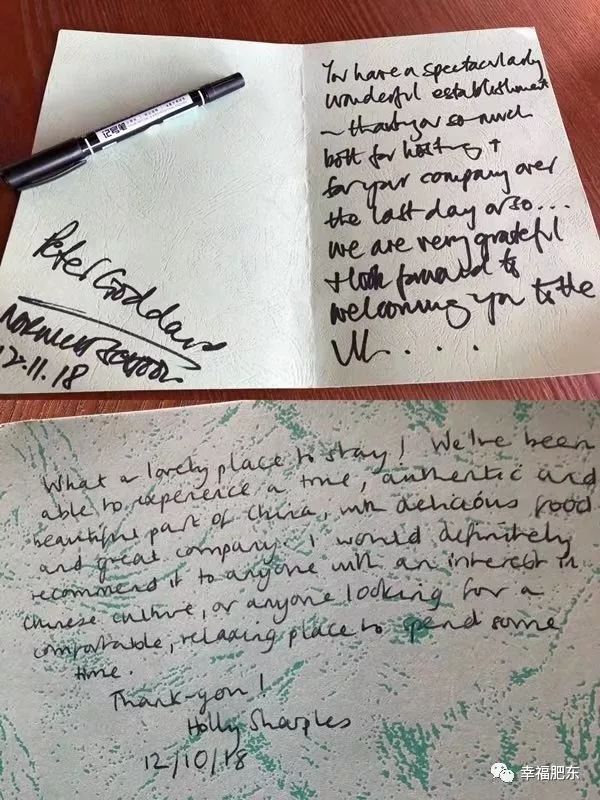 记号笔
Peter Goddard
12.11.18
You have a spectacularly
wonderful establishment
~ thank you so much
both for hosting +
for your company over
the last day or so...
we are very grateful
+ look forward to
welcoming you to the
UK....
What a lovely place to stay! We've been
able to experience a true, authentic and
beautiful part of China, with delicious food
and great company. I would definitely
recommend it to anyone with an interest in
Chinese culture, or anyone looking for a
comfortable, relaxing place to spend some
time.
Thank-you!
Holly Sharples
12/10/18
幸福肥东